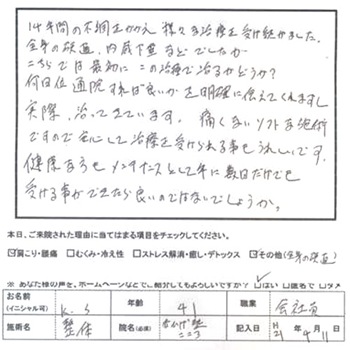 14年間の不調をかかえ 様々な治療を受け続けました。
全身の硬直、内臓下垂 などでしたが
こちらでは最初に この治療で治るかどうか?
何日位通院すれば良いかを明確に伝えてくれますし
実際、治ってきています。 痛くないソフトな施術
ですので安心して治療を受けられる事もうれしいです。
健康な方もメンテナンスとして年に数日だけでも
受ける事ができたら良いのではないでしょうか。
本日、ご来院された理由に当てはまる項目をチェックしてください。
☑肩こり・腰痛 □むくみ・冷え性 □ストレス解消・癒し・デトックス ☑その他(全身の硬直)
※ あなた様の声を、ホームページなどでご紹介してもよろしいですか? ☑はい □匿名で □ダメ
お名前(イニシャル可) K.S 年齢 41 職業 会社員
施術名 整体 院名(必須) こころ 記入日 H21年4月11日